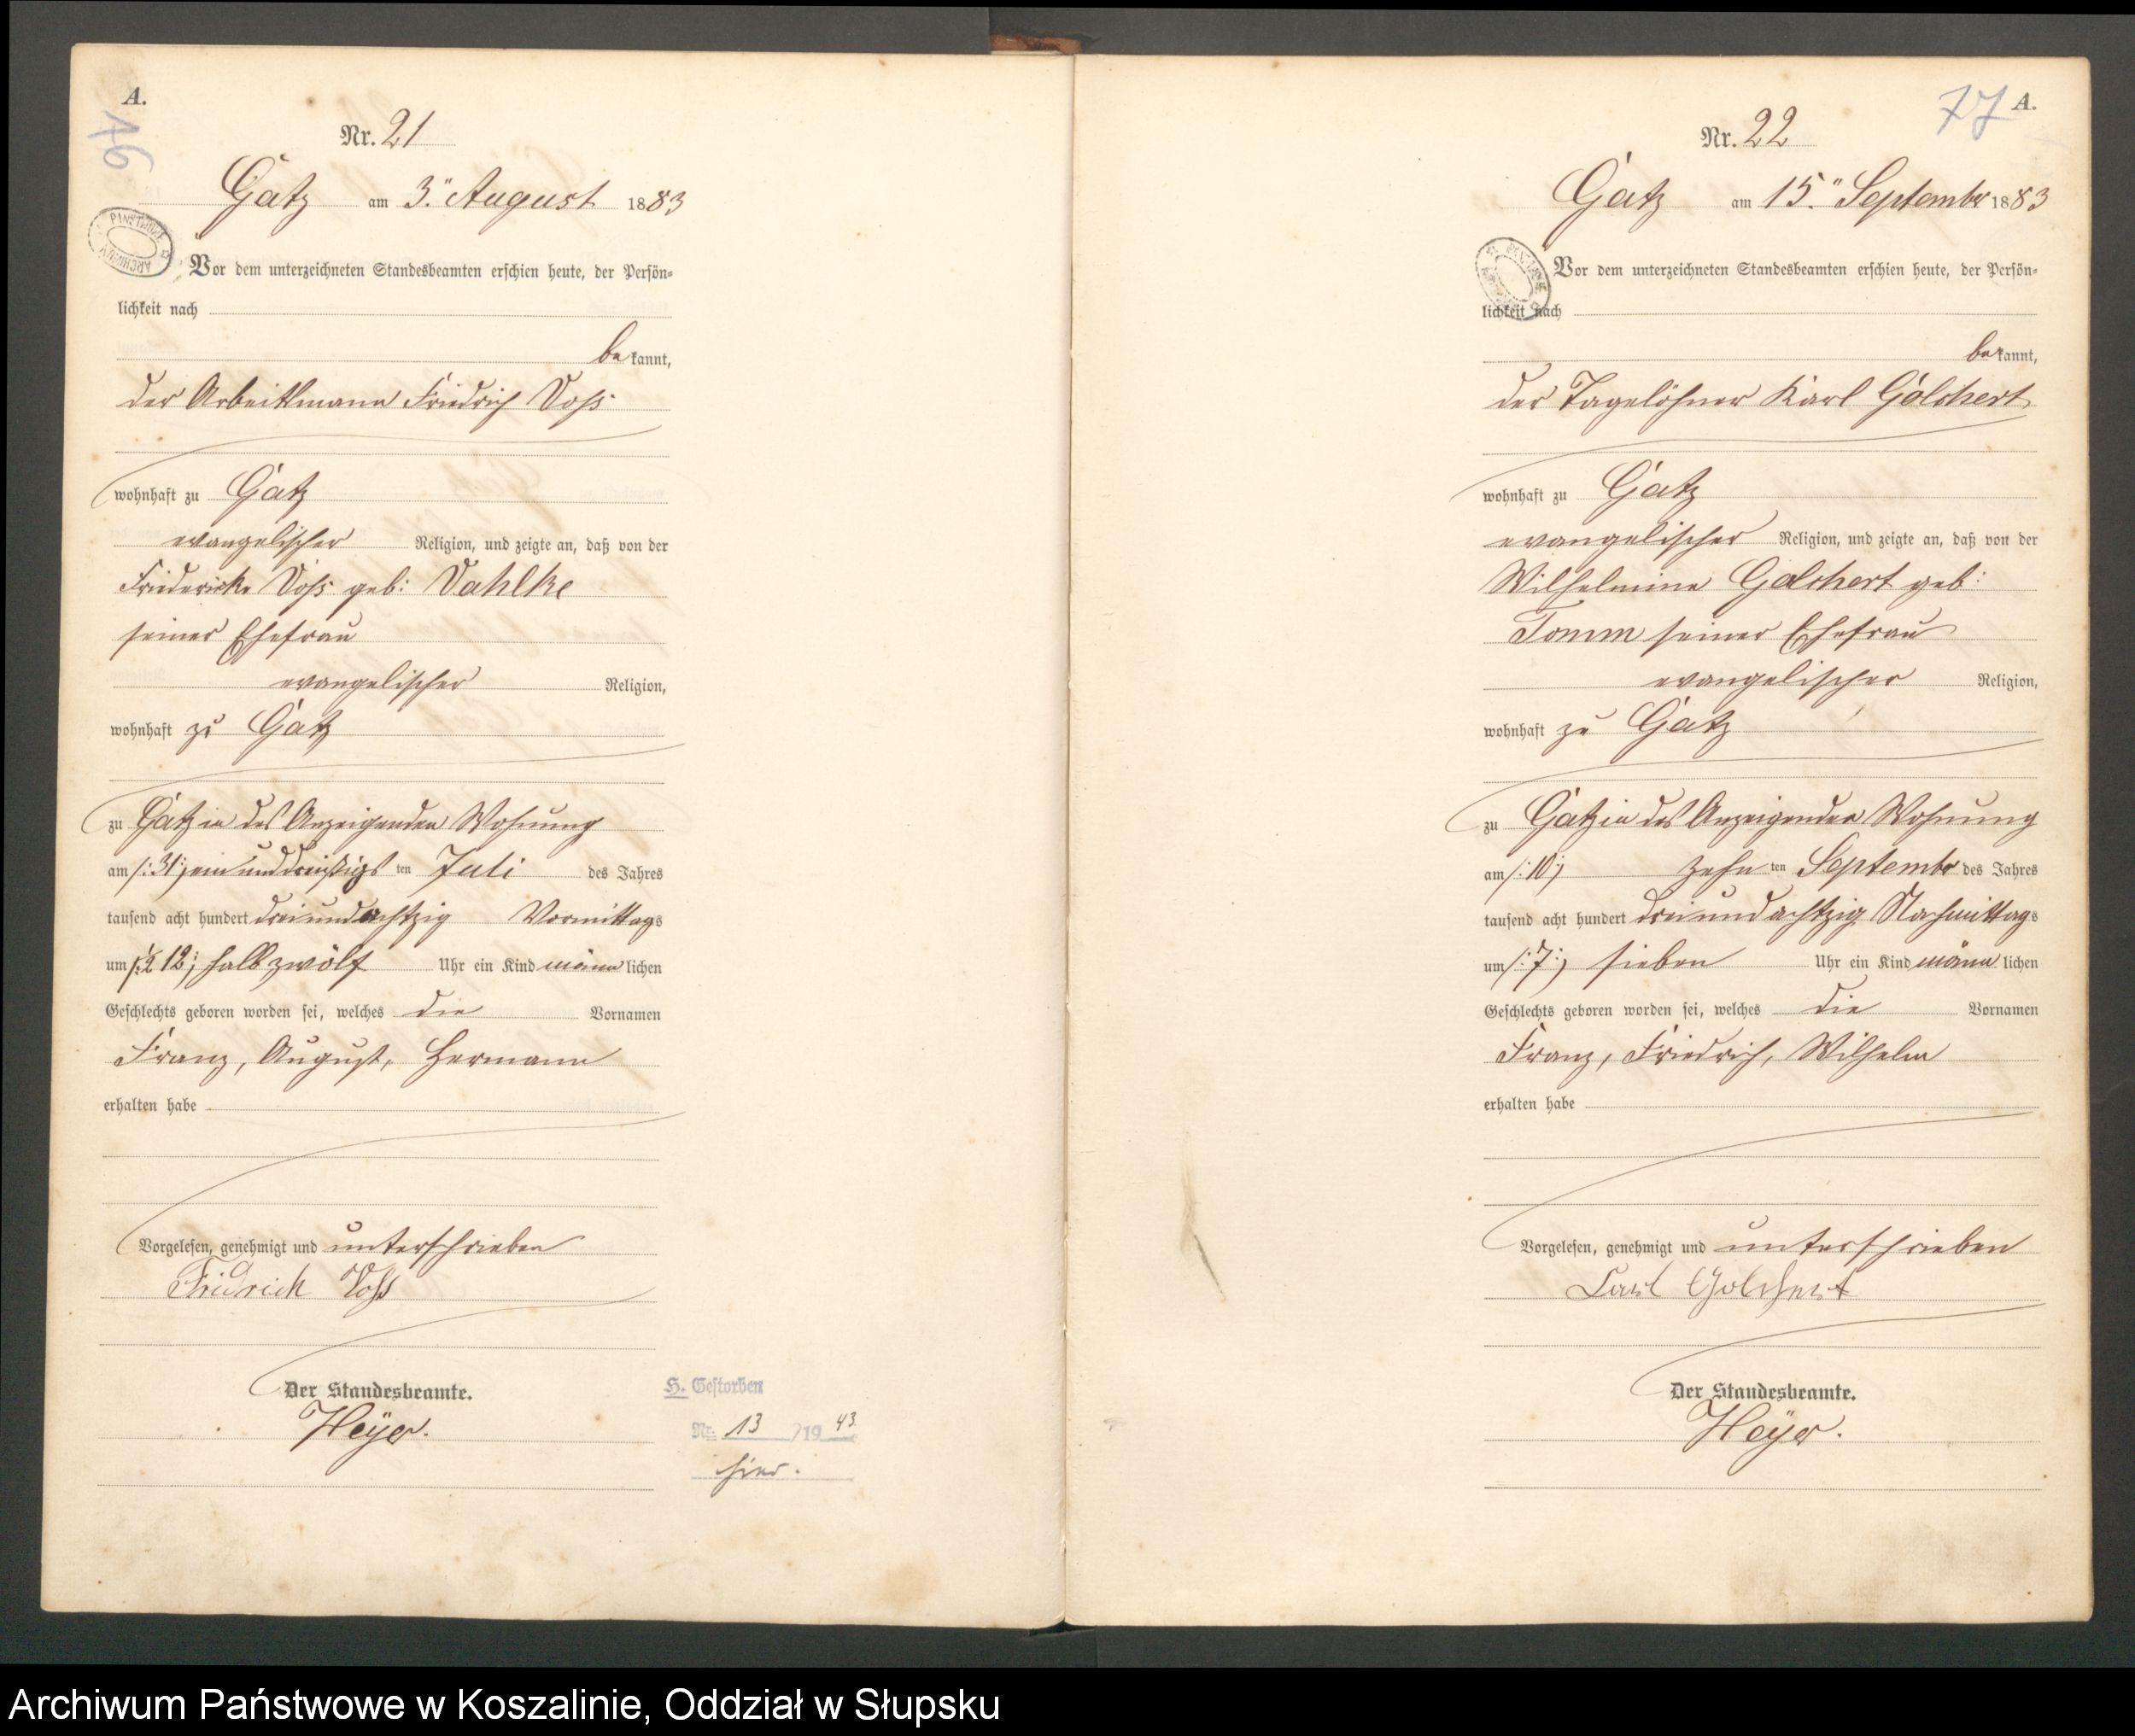 A.
16
Nr. 21
Gatz am 3ten August 1883
Vor dem unterzeichneten Standesbeamten erschien heute, der Persön-
lichkeit nach
bekannt,
der Arbeitsmann Friedrich Voß
wohnhaft zu Gatz
evangelischer Religion, und zeigte an, daß von der
Friedericke Voß geb: Vahlke
seiner Ehefrau
evangelischer Religion,
wohnhaft zu Gatz
zu Gatz in des Anzeigenden Wohnung
am /:31:/ ein und dreißigsten Juli des Jahres
tausend acht hundert drei und achtzig Vormittags
um /:½ 12:/ halb zwölf Uhr ein Kind männlichen
Geschlechts geboren worden sei, welches die Vornamen
Franz, August, Hermann
erhalten habe
Vorgelesen, genehmigt und unterschrieben
Fridrich Voß
Der Standesbeamte.
Heÿer.
H. Gestorben
Nr. 13 /1943
hier.
77 A.
Nr. 22
Gatz am 15ten September 1883
Vor dem unterzeichneten Standesbeamten erschien heute, der Persön-
lichkeit nach
bekannt,
der Tagelöhner Karl Golchert
wohnhaft zu Gatz
evangelischer Religion, und zeigte an, daß von der
Wilhelmine Golchert geb:
Tomm seiner Ehefrau
evangelischer Religion,
wohnhaft zu Gatz
zu Gatz in des Anzeigenden Wohnung
am /:10:/ zehnten September des Jahres
tausend acht hundert drei und achtzig Nachmittags
um /:7:/ sieben Uhr ein Kind männlichen
Geschlechts geboren worden sei, welches die Vornamen
Franz, Friedrich, Wilhelm
erhalten habe
Vorgelesen, genehmigt und unterschrieben
Carl Golchert
Der Standesbeamte.
Heÿer.
Archiwum Państwowe w Koszalinie, Oddział w Słupsku